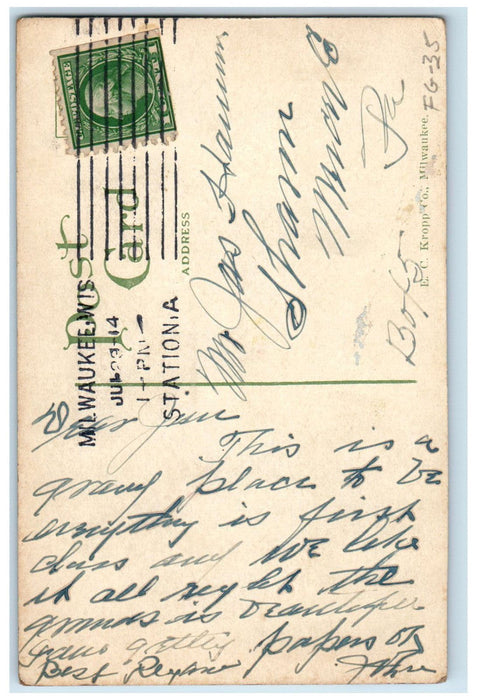 U.S. POSTAGE
1 CENT 1
MILWAUKEE, WIS
JUL 29 14
1-PM
STATION, A
Post
Card
ADDRESS
Mr Jas
Sharon
Pa
Box
E. C. Kropp Co., Milwaukee.
FG-35
Dear
This is a
grand place to be
everything is first
class and we like
it all right the
grounds is
papers
Best
John